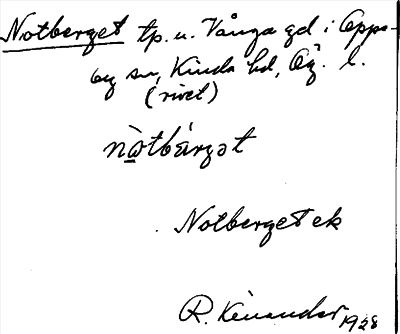 Notberget tp. u. Vånga gd i Opps-
by sn, Kinda hd, Ög. l.
(rivet)
nòtbärgət
Notberget ek
R. Kinander 1928